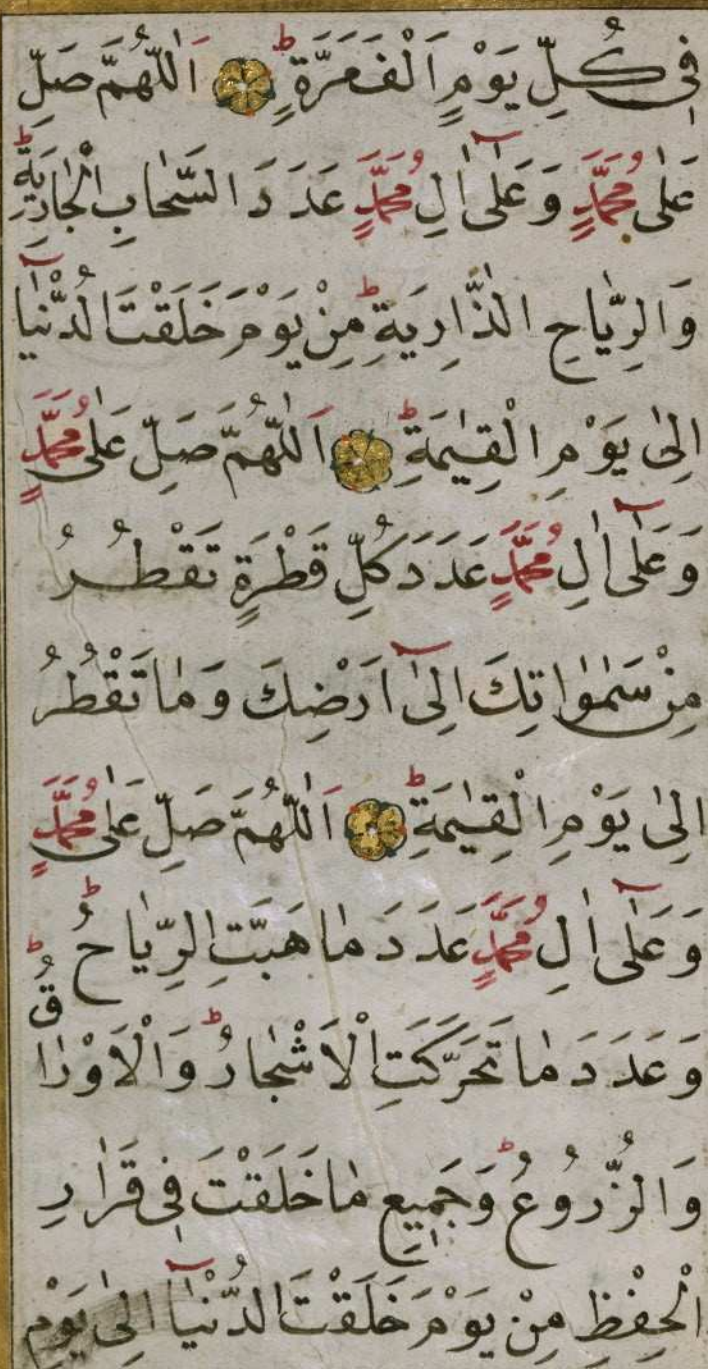 فِى كُلِّ يَوْمٍ اَلْفَ مَرَّةٍ ط اَللّٰهُمَّ صَلِّ
عَلٰى مُحَمَّدٍ وَعَلٰٓى اٰلِ مُحَمَّدٍ عَدَدَ السَّحَابِ الْجَارِيَةِ ط
وَالرِّيَاحِ الذَّارِيَةِ ط مِنْ يَوْمَ خَلَقْتَ الدُّنْيَآ
اِلٰى يَوْمِ الْقِيٰمَةِ ط اَللّٰهُمَّ صَلِّ عَلٰى مُحَمَّدٍ
وَعَلٰٓى اٰلِ مُحَمَّدٍ عَدَدَ كُلِّ قَطْرَةٍ تَقْطُرُ
مِنْ سَمٰوَاتِكَ اِلٰٓى اَرْضِكَ وَمَا تَقْطُرُ
اِلٰى يَوْمِ الْقِيٰمَةِ ط اَللّٰهُمَّ صَلِّ عَلٰى مُحَمَّدٍ
وَعَلٰٓى اٰلِ مُحَمَّدٍ عَدَدَ مَا هَبَّتِ الرِّيَاحُ ط
وَعَدَدَ مَا تَحَرَّكَتِ الْاَشْجَارُ ط وَالْاَوْرَاقُ ط
وَالزُّرُوعُ ط وَجَمِيعِ مَا خَلَقْتَ فِى قَرَارِ
الْحِفْظِ مِنْ يَوْمَ خَلَقْتَ الدُّنْيَآ اِلٰى يَوْمِ